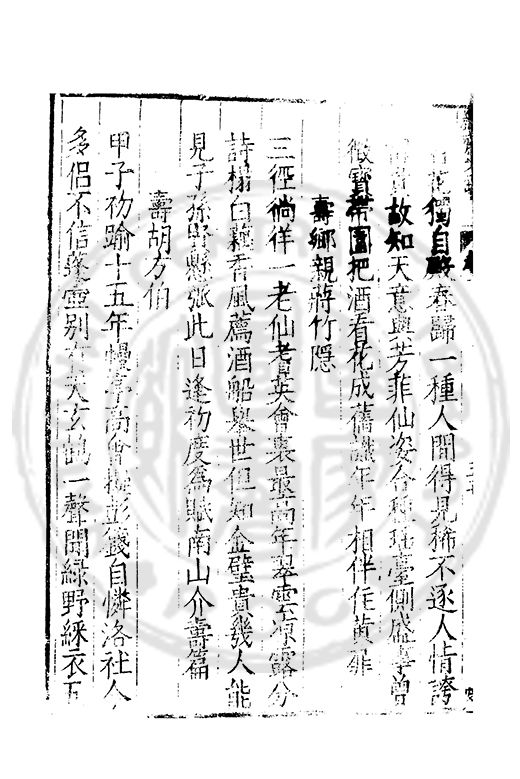 花獨自殿春歸一種人間得見稀不逐人情誇
故知天意與芳菲仙姿合種瑤臺側盛事曾
徵寶帶圍把酒看花成舊讖年年相伴住黃扉
壽鄉親蔣竹隱
三徑徜徉一老仙耆英會裏最高年翠雲凉露分
詩榻白藕香風薦酒船舉世但知金璧貴幾人能
見子孫賢縣弧此日逢初度爲賦南山介壽篇
壽胡方伯
甲子初踰十五年幔亭高會擬彭籛自憐洛社人
多侣不信蓬壺别有天玄鶴一聲聞綠野綵衣五